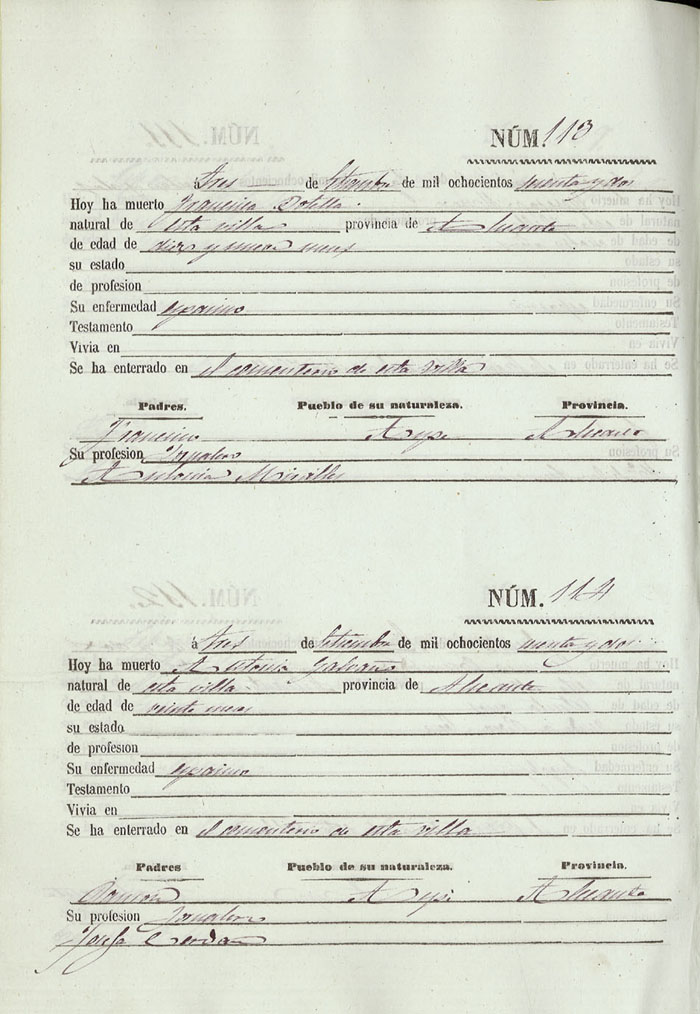 NÚM. 113
á tres de Setiembre de mil ochocientos y dos
Hoy ha muerto Francisca Botella
natural de esta villa provincia de Alicante
de edad de diez y nueve meses
su estado
de profesion
Su enfermedad espasmo
Testamento
Vivia en
Se ha enterrado en el cementerio de esta villa
Padres. Pueblo de su naturaleza. Provincia.
Francisco Aspe Alicante
Su profesion Jornalero
Antonia Miralles
NÚM. 114
á tres de Setiembre de mil ochocientos y dos
Hoy ha muerto Antonia Galvañ
natural de esta villa provincia de Alicante
de edad de veinte meses
su estado
de profesion
Su enfermedad espasmo
Testamento
Vivia en
Se ha enterrado en el cementerio de esta villa
Padres Pueblo de su naturaleza. Provincia.
Ramón Aspe Alicante
Su profesion Jornalero
Josefa Cerdan